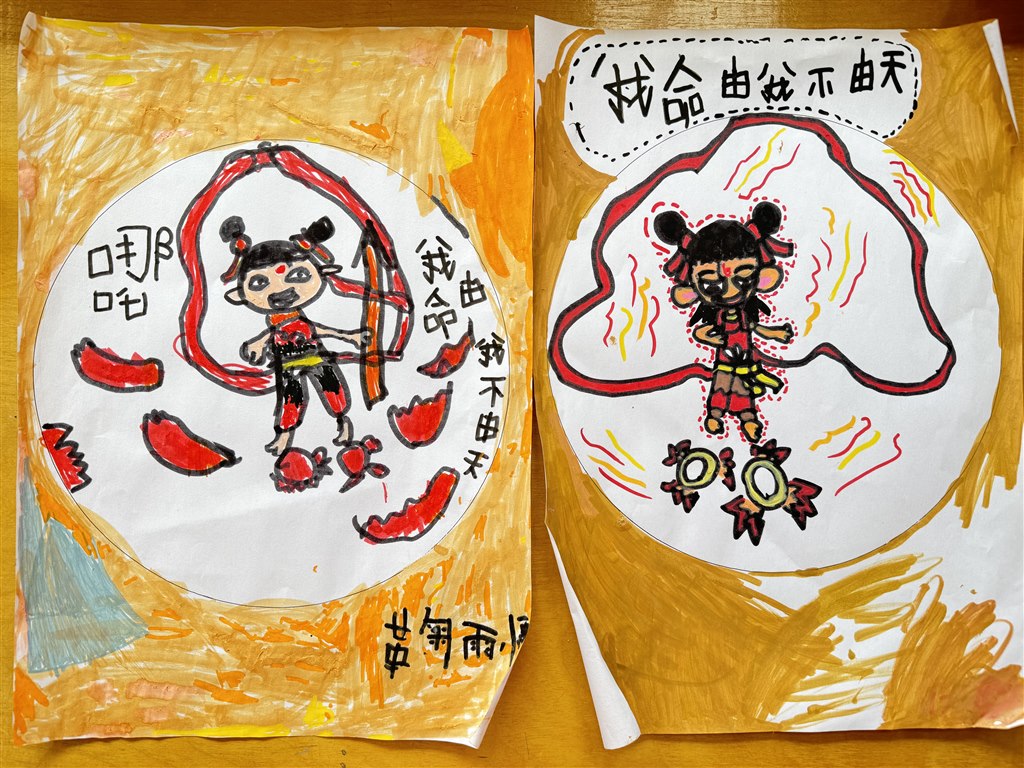 哪
吒
我命由
我不由天
我命由我不由天